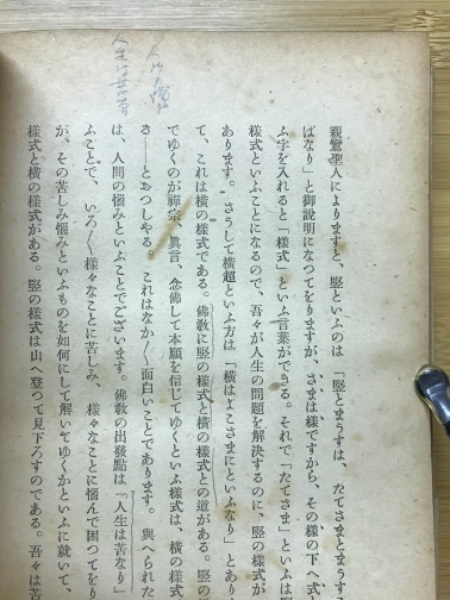 親鸞聖人によりますと、竪といふのは「竪とまうすは、たてさまとまうす
ばなり」と御說明になつてをりますが、さまは樣ですから、その、樣の下へ式
ふ字を入れると「樣式」といふ言葉ができる。それで「たてさま」といふは竪
樣式といふことになるので、吾々が人生の問題を解決するのに、竪の樣式が
あります。さうして橫超といふ方は「橫はよこさまにといふなり」とあり
て、これは橫の樣式である。佛敎に竪の樣式と橫の樣式との道がある。竪の
でゆくのが禪宗、眞言、念佛して本願を信じてゆくといふ樣式は、橫の樣式
る――とおつしやる。これはなか〳〵面白いことであります。與へられた
は、人間の惱みといふことでございます。佛敎の出發點は「人生は苦なり」
ふことで、いろ〳〵樣々なことに苦しみ、樣々なことに惱んで困つてをり
が、その苦しみ惱みといふものを如何にして解いてゆくかといふに就いて、
樣式と橫の樣式がある。竪の樣式は山へ登つて見下ろすのである。吾々は苦